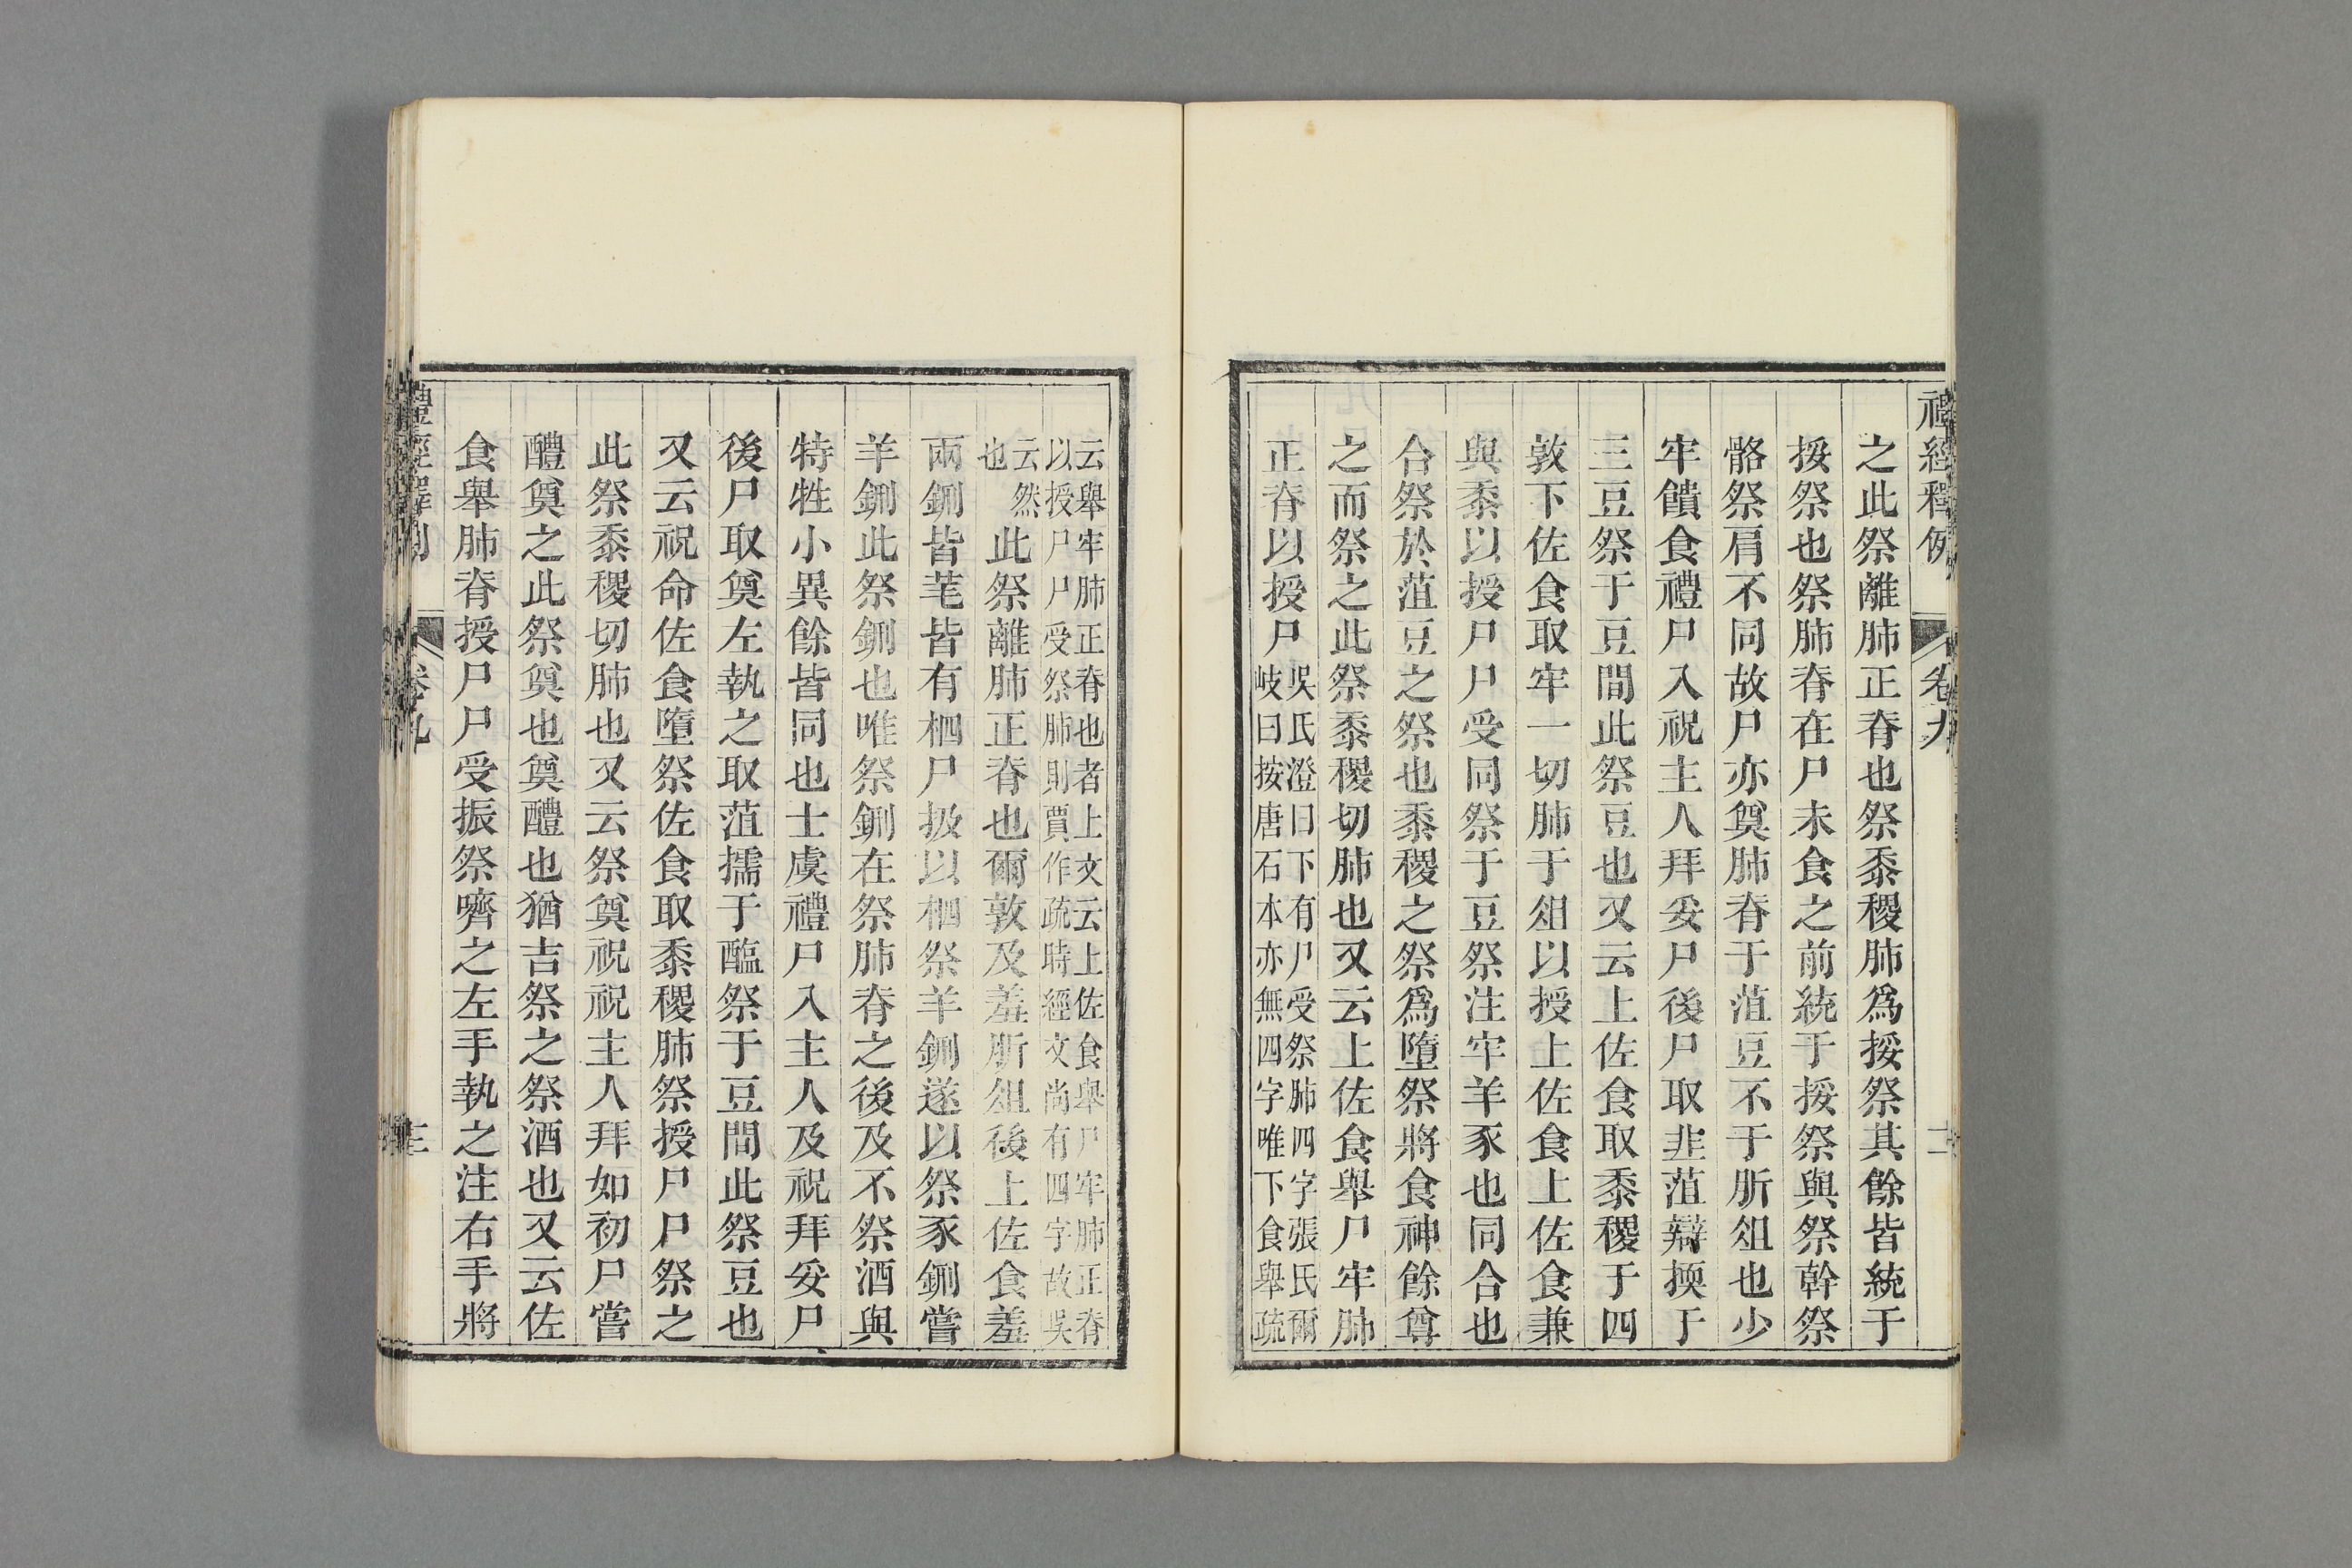 禮經釋例 卷九 二
之此祭離肺正脊也祭黍稷肺爲挼祭其餘皆統于
挼祭也祭肺脊在尸未食之前統于挼祭與祭幹祭
骼祭肩不同故尸亦奠肺脊于菹豆不于肵俎也少
牢饋食禮尸入祝主人拜妥尸後尸取韭菹辯擩于
三豆祭于豆間此祭豆也又云上佐食取黍稷于四
敦下佐食取牢一切肺于俎以授上佐食上佐食兼
與黍以授尸尸受同祭于豆祭注牢羊豕也同合也
合祭於菹豆之祭也黍稷之祭爲墮祭將食神餘尊
之而祭之此祭黍稷切肺也又云上佐食舉尸牢肺
正脊以授尸吳氏澄曰下有尸受祭肺四字張氏爾
岐曰按唐石本亦無四字唯下食舉疏
云舉牢肺正脊也者上文云上佐食舉尸牢肺正脊
以授尸尸受祭肺則賈作疏時經文尚有四字故吳
云然
也此祭離肺正脊也爾敦及羞肵俎後上佐食羞
兩鉶皆芼皆有柶尸扱以柶祭羊鉶遂以祭豕鉶嘗
羊鉶此祭鉶也唯祭鉶在祭肺脊之後及不祭酒與
特牲小異餘皆同也士虞禮尸入主人及祝拜妥尸
後尸取奠左執之取菹擩于醢祭于豆間此祭豆也
又云祝命佐食墮祭佐食取黍稷肺祭授尸尸祭之
此祭黍稷切肺也又云祭奠祝祝主人拜如初尸嘗
醴奠之此祭奠也奠醴也猶吉祭之祭酒也又云佐
食舉肺脊授尸尸受振祭嚌之左手執之注右手將
禮經釋例 卷九 三